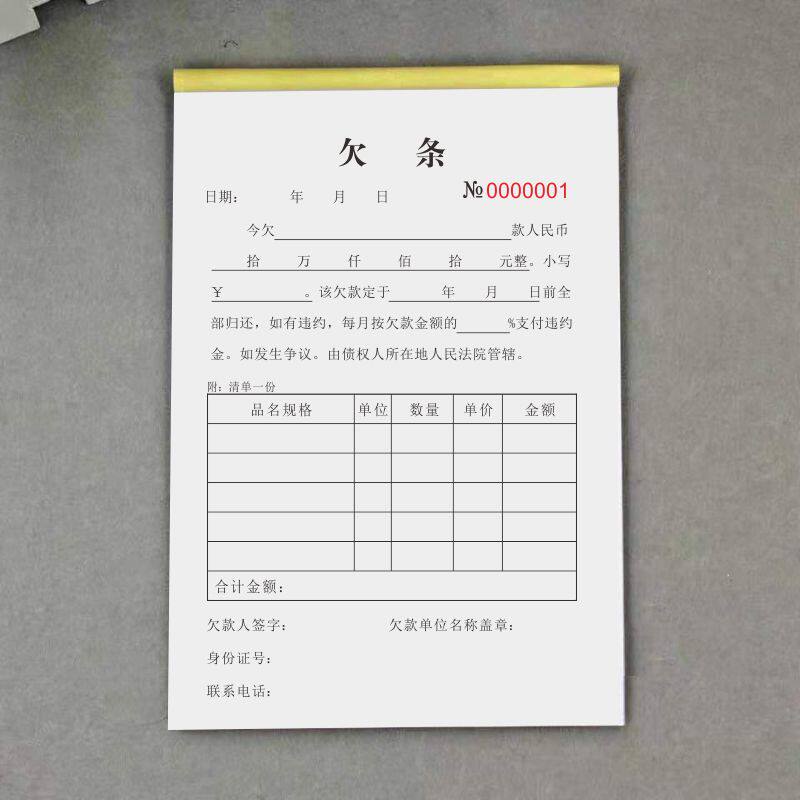 欠 条
日期： 年 月 日 №0000001
今欠 款人民币
拾 万 仟 佰 拾 元整。小写
￥ 。该欠款定于 年 月 日前全
部归还，如有违约，每月按欠款金额的 %支付违约
金。如发生争议。由债权人所在地人民法院管辖。
附：清单一份
品名规格 单位 数量 单价 金额
合计金额：
欠款人签字： 欠款单位名称盖章：
身份证号：
联系电话：